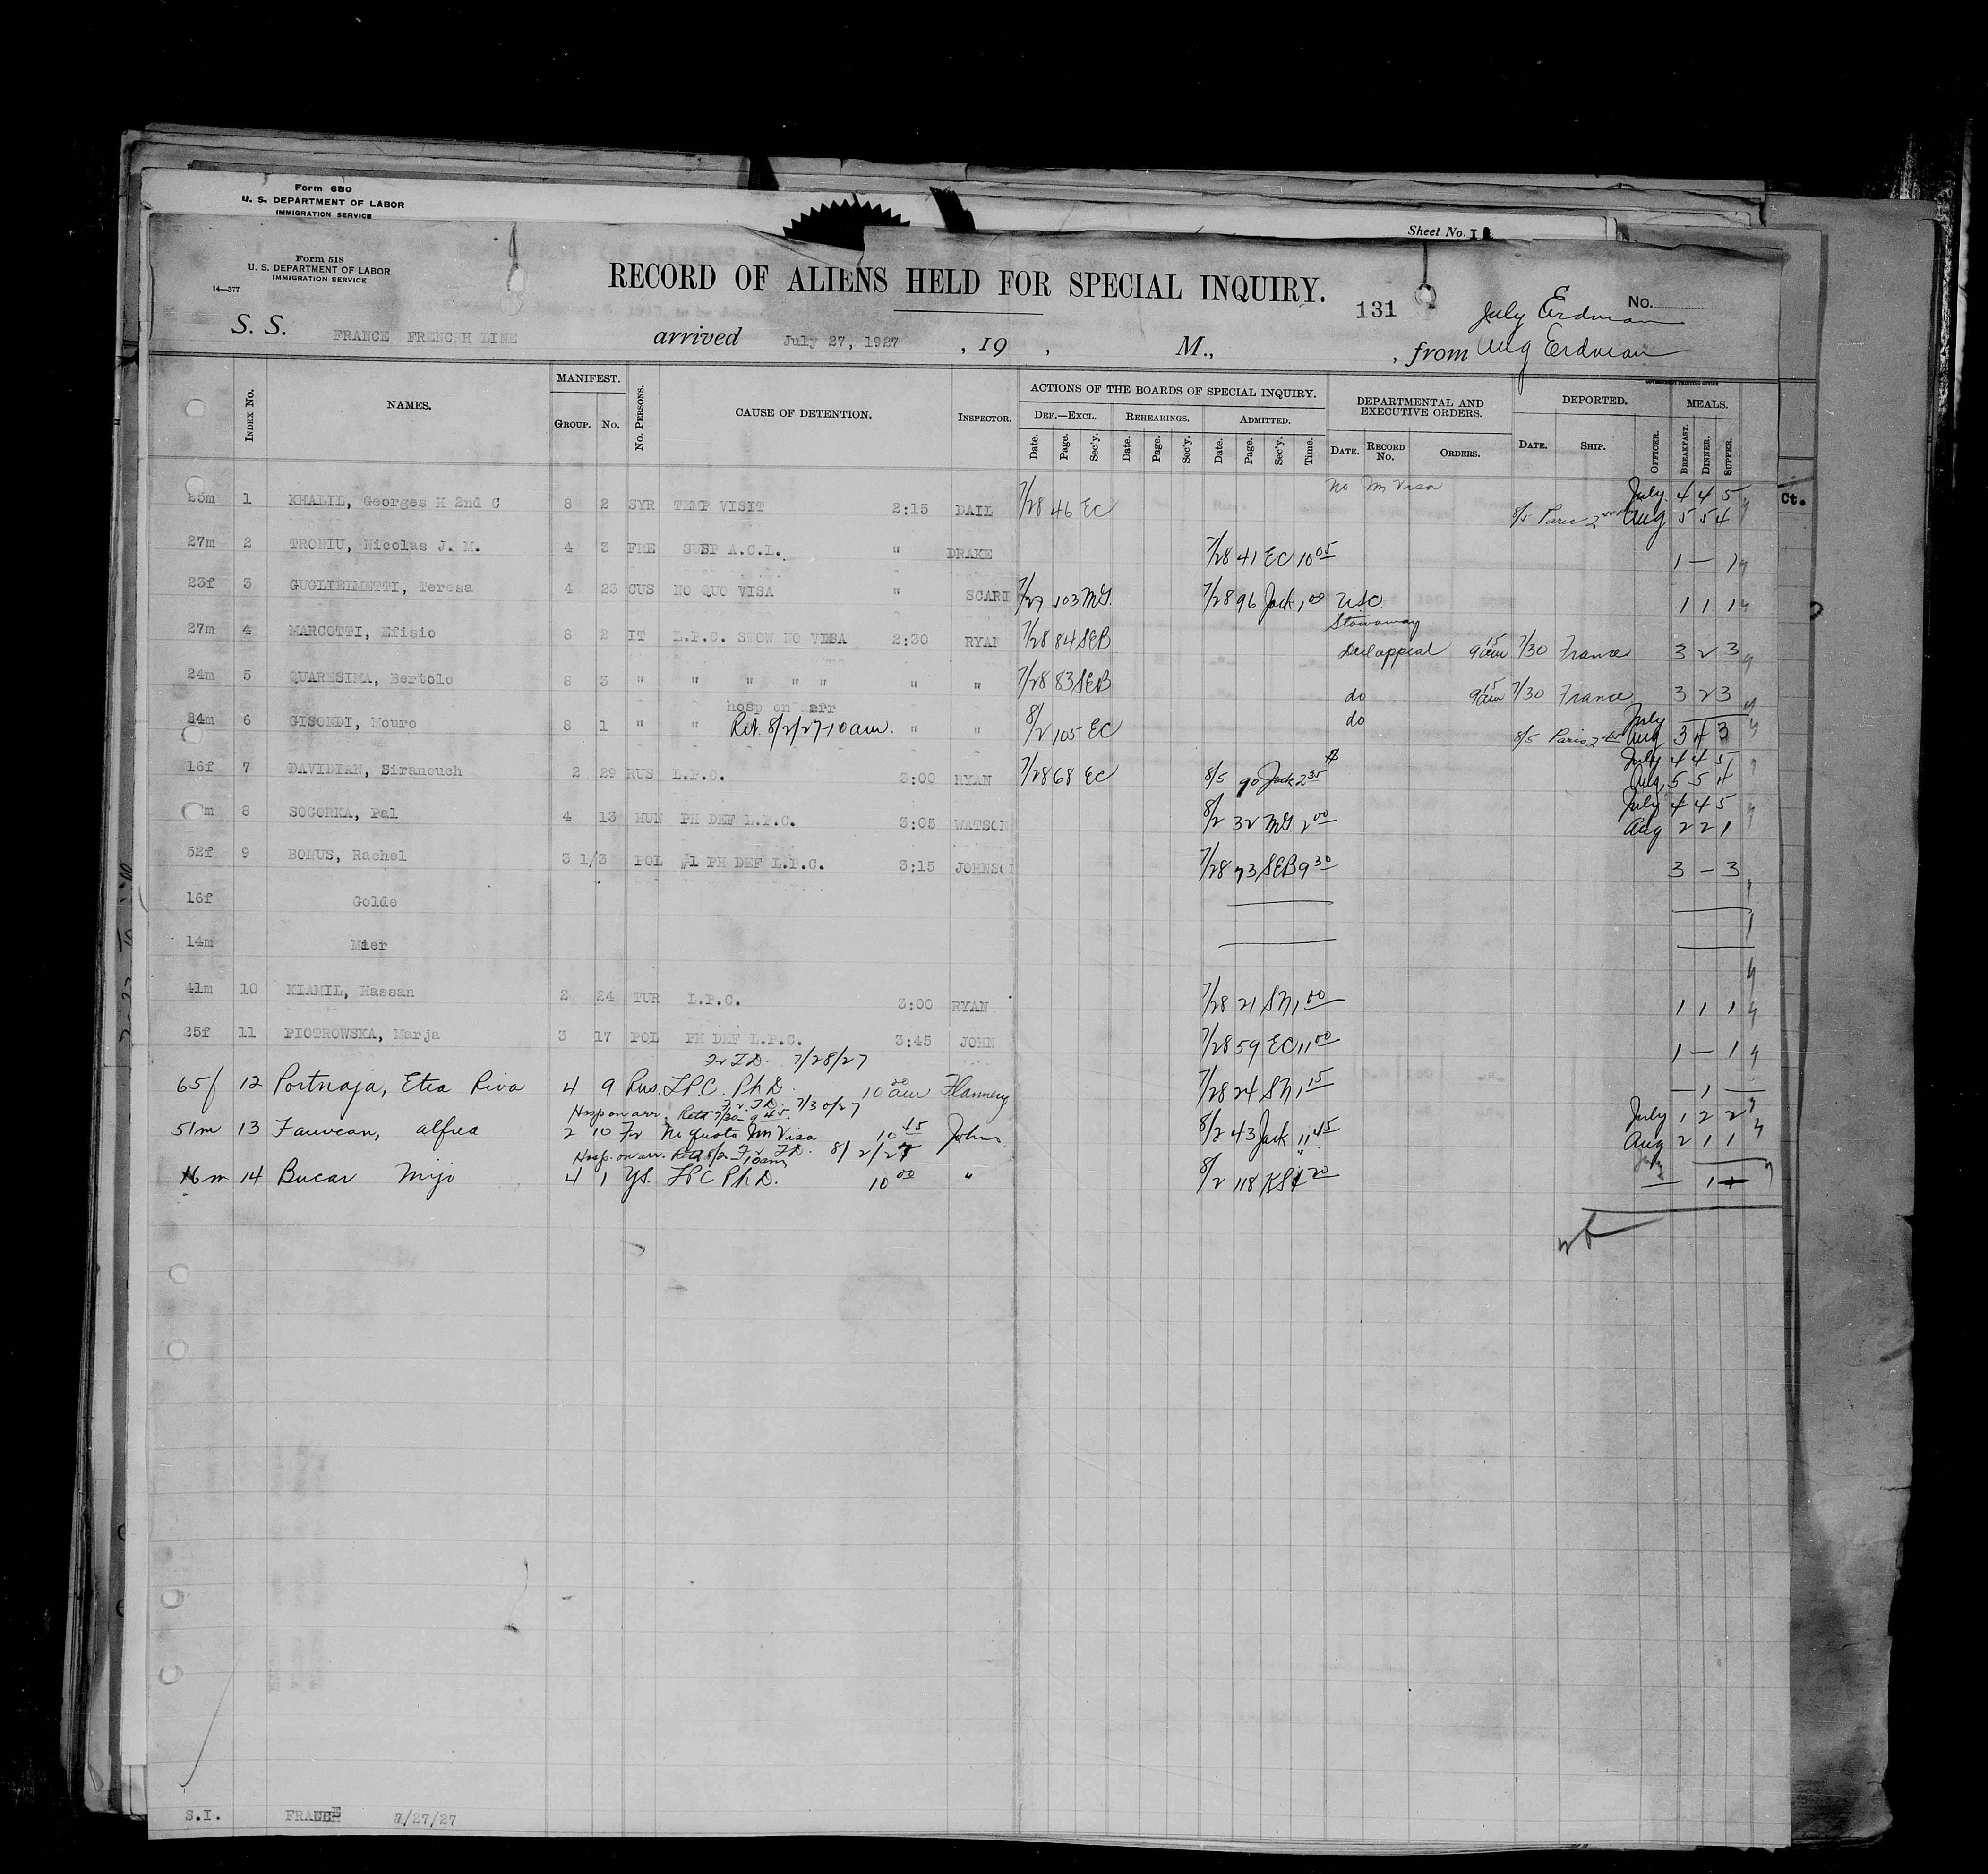 Form 680
U. S. DEPARTMENT OF LABOR
IMMIGRATION SERVICE
Sheet No.
Form 518
U. S. DEPARTMENT OF LABOR
IMMIGRATION SERVICE
14—377
RECORD OF ALIENS HELD FOR SPECIAL INQUIRY.
131
No.
July Erdman
S. S. FRANCE FRENCH LINE arrived July 27, 1927 , 19 , M., , from Aug Erdman
GOVERNMENT PRINTING OFFICE
INDEX No. NAMES. MANIFEST. GROUP. No. No. PERSONS. CAUSE OF DETENTION. INSPECTOR. ACTIONS OF THE BOARDS OF SPECIAL INQUIRY. DEF.—EXCL. Date. Page. Sec'y. REHEARINGS. Date. Page. Sec'y. ADMITTED. Date. Page. Sec'y. Time. DEPARTMENTAL AND EXECUTIVE ORDERS. DATE. RECORD No. ORDERS. DEPORTED. DATE. SHIP. OFFICER. MEALS. BREAKFAST. DINNER. SUPPER.
Ct.
No Im Visa July 4 4 5
1 KHALIL, Georges H 2nd C 8 2 SYR TEMP VISIT 2:15 DAIL 7/28 46 EC 8/5 Paris Aug 5 5 4
27m 2 TRONIU, Nicolas J. M. 4 3 FRE SUSP A.C.L. " DRAKE 7/28 41 EC 10 05 1 — 1
23f 3 GUGLIEIMETTI, Teresa 4 23 CUS NO QUO VISA " SCARI 7/27 103 MG. 7/28 96 Jack 1 00 USC 1 1 1
Stowaway
27m 4 MARCOTTI, Efisio 8 2 IT L.P.C. STOW NO VISA 2:30 RYAN 7/28 84 SEB Decl appeal 9 15 am 7/30 France 3 2 3
24m 5 QUARESIMA, Bertolo 8 3 " " " " " " " 7/28 83 SEB do 9 15 am 7/30 France 3 2 3
hosp on arr
do July
24m 6 GISONDI, Mouro 8 1 " " Ret. 8/2/27-10 am. " " 8/2 105 EC 8/5 Paris Aug 3 4 3
July 4 4 5
16f 7 DAVIDIAN, Siranouch 2 29 RUS L.P.C. 3:00 RYAN 7/28 68 EC 8/5 90 Jack 2 35 Aug 5 5 4
July 4 4 5
m 8 SOGORKA, Pal 4 13 HUN PH DEF L.P.C. 3:05 WATSON 8/2 32 MG 2 00 Aug 2 2 1
52f 9 BONUS, Rachel 3 1/3 POL #1 PH DEF L.P.C. 3:15 JOHNSON 7/28 73 SEB 9 30 3 — 3
16f Golde
14m Mier
41m 10 KIAMIL, Hassan 2 24 TUR L.P.C. 3:00 RYAN 7/28 21 SN 1 00 1 1 1
25f 11 PIOTROWSKA, Marja 3 17 POL PH DEF L.P.C. 3:45 JOHN 7/28 59 EC 11 00 1 — 1
Fr T.D. 7/28/27
65f 12 Portnaja, Etia Riva 4 9 Rus. LPC. Ph D. 10 00 am Flannery 7/28 24 SN 1 15 — 1 —
Fr. T.D. 7/30/27
Hosp on arr. Retd 7/30 - 9 45. July 1 2 2
51m 13 Fauvean, Alfred 2 10 Fr No Quota Im Visa 10 15 John. 8/2 43 Jack 11 45 Aug 2 1 1
Hosp. on arr. Retd 8/2 - 10 am Fr T.D. 8/2/27 July
16m 14 Bucar Mijo 4 1 YS. LPC Ph D. 10 00 " 8/2 118 KS 20 — 1
S.I. FRANCE 7/27/27